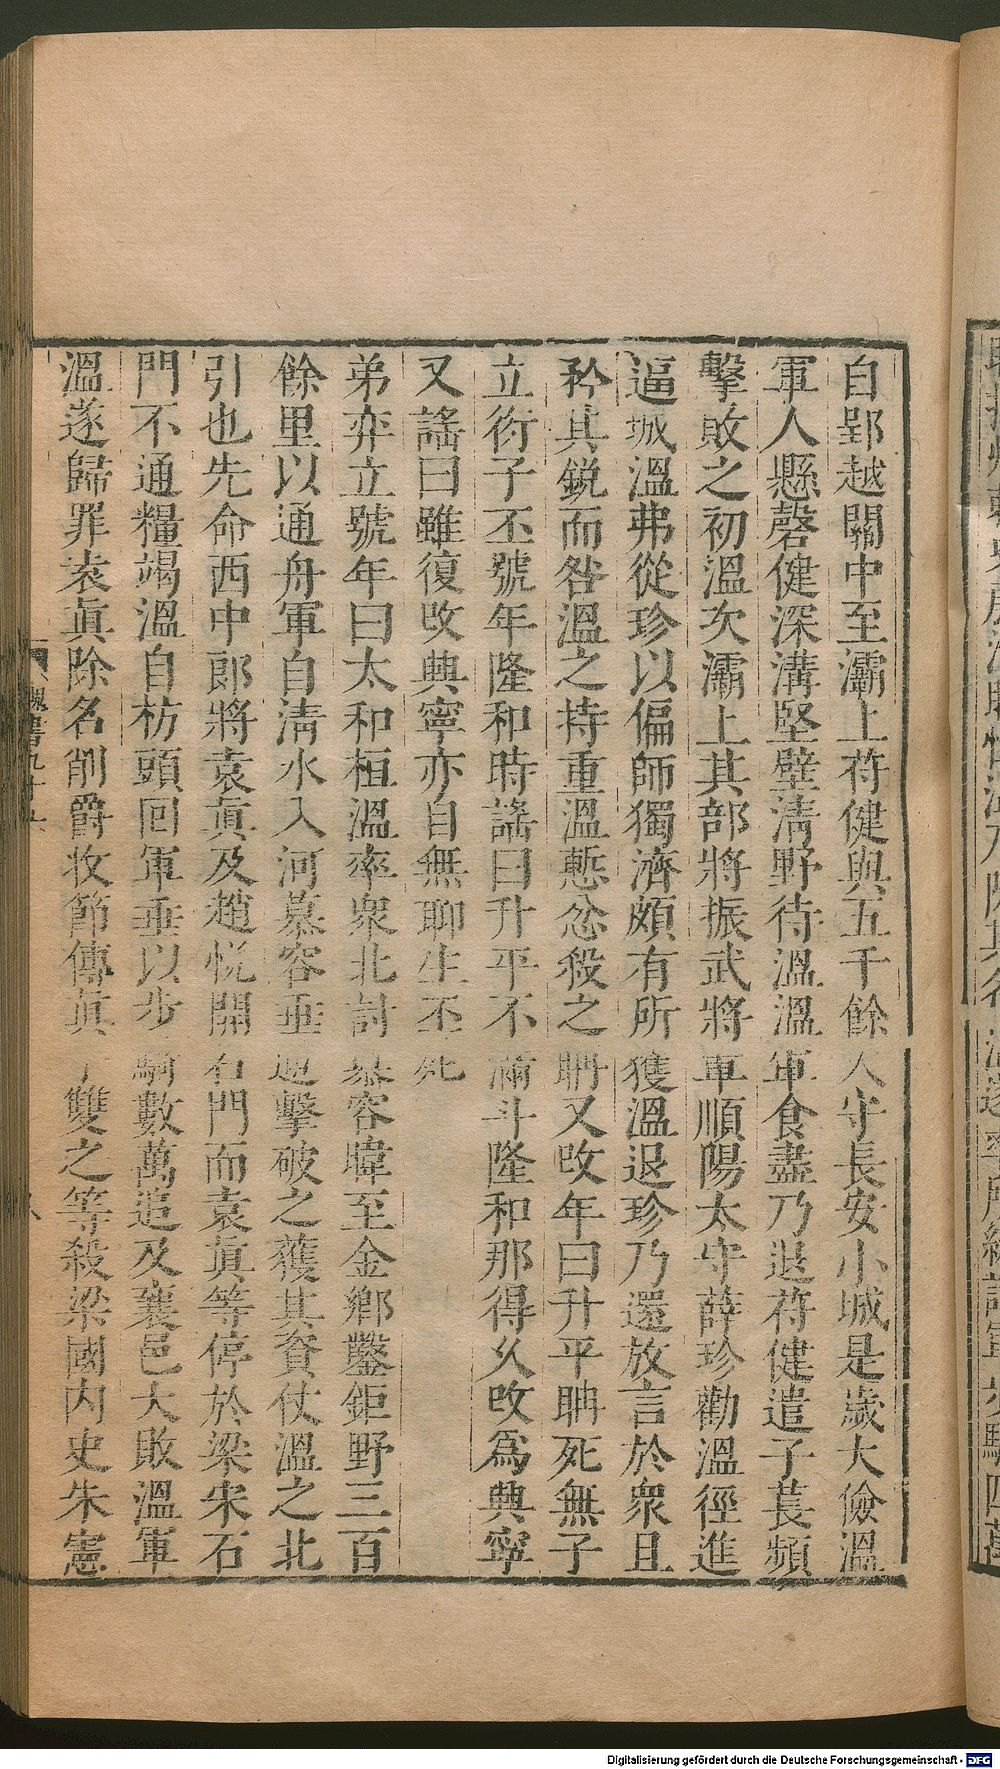 自郢越關中至灞上苻健與五千餘人守長安小城是歲大儉溫
軍人懸磬健深溝堅壁清野待溫溫軍食盡乃退苻健遣子萇頻
擊敗之初溫次灞上其部將振武將軍順陽太守薛珍勸溫徑進
逼城溫弗從珍以偏師獨濟頗有所獲溫退珍乃還放言於衆且
矜其銳而咎溫之持重溫慙忿殺之聃又改年曰升平聃死無子
立衍子丕號年隆和時謠曰升平不滿斗隆和那得久改爲興寧
又謠曰雖復改興寧亦自無聊生丕死
弟弈立號年曰太和桓溫率衆北討慕容暐至金鄉鑿鉅野三百
餘里以通舟軍自清水入河慕容垂逆擊破之獲其資仗溫之北
引也先命西中郎將袁眞及趙悅開石門而袁眞等停於梁宋石
門不通糧竭溫自枋頭回軍垂以步騎數萬追及襄邑大敗溫軍
溫遂歸罪袁眞除名削爵收節傳眞子雙之等殺梁國內史朱憲
魏書九十六
Digitalisierung gefördert durch die Deutsche Forschungsgemeinschaft - DFG